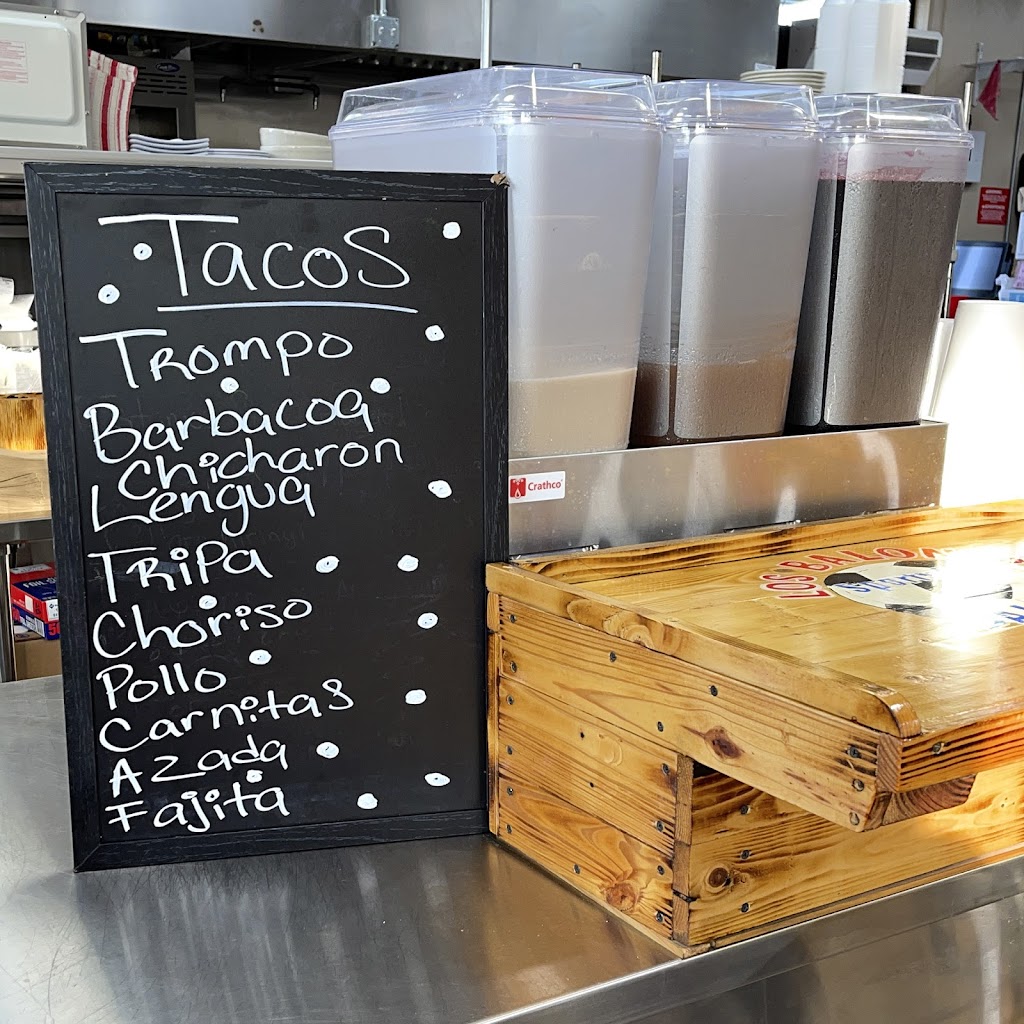 Tacos
Trompo
Barbacoa
Chicharon
Lengua
Tripa
Choriso
Pollo
Carnitas
Azada
Fajita
Crathco
LOS